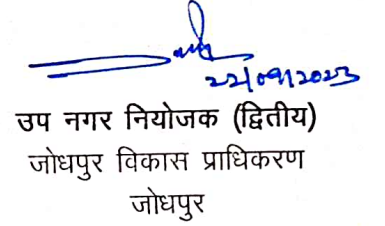 22/09/2023
उप नगर नियोजक (द्वितीय)
जोधपुर विकास प्राधिकरण
जोधपुर